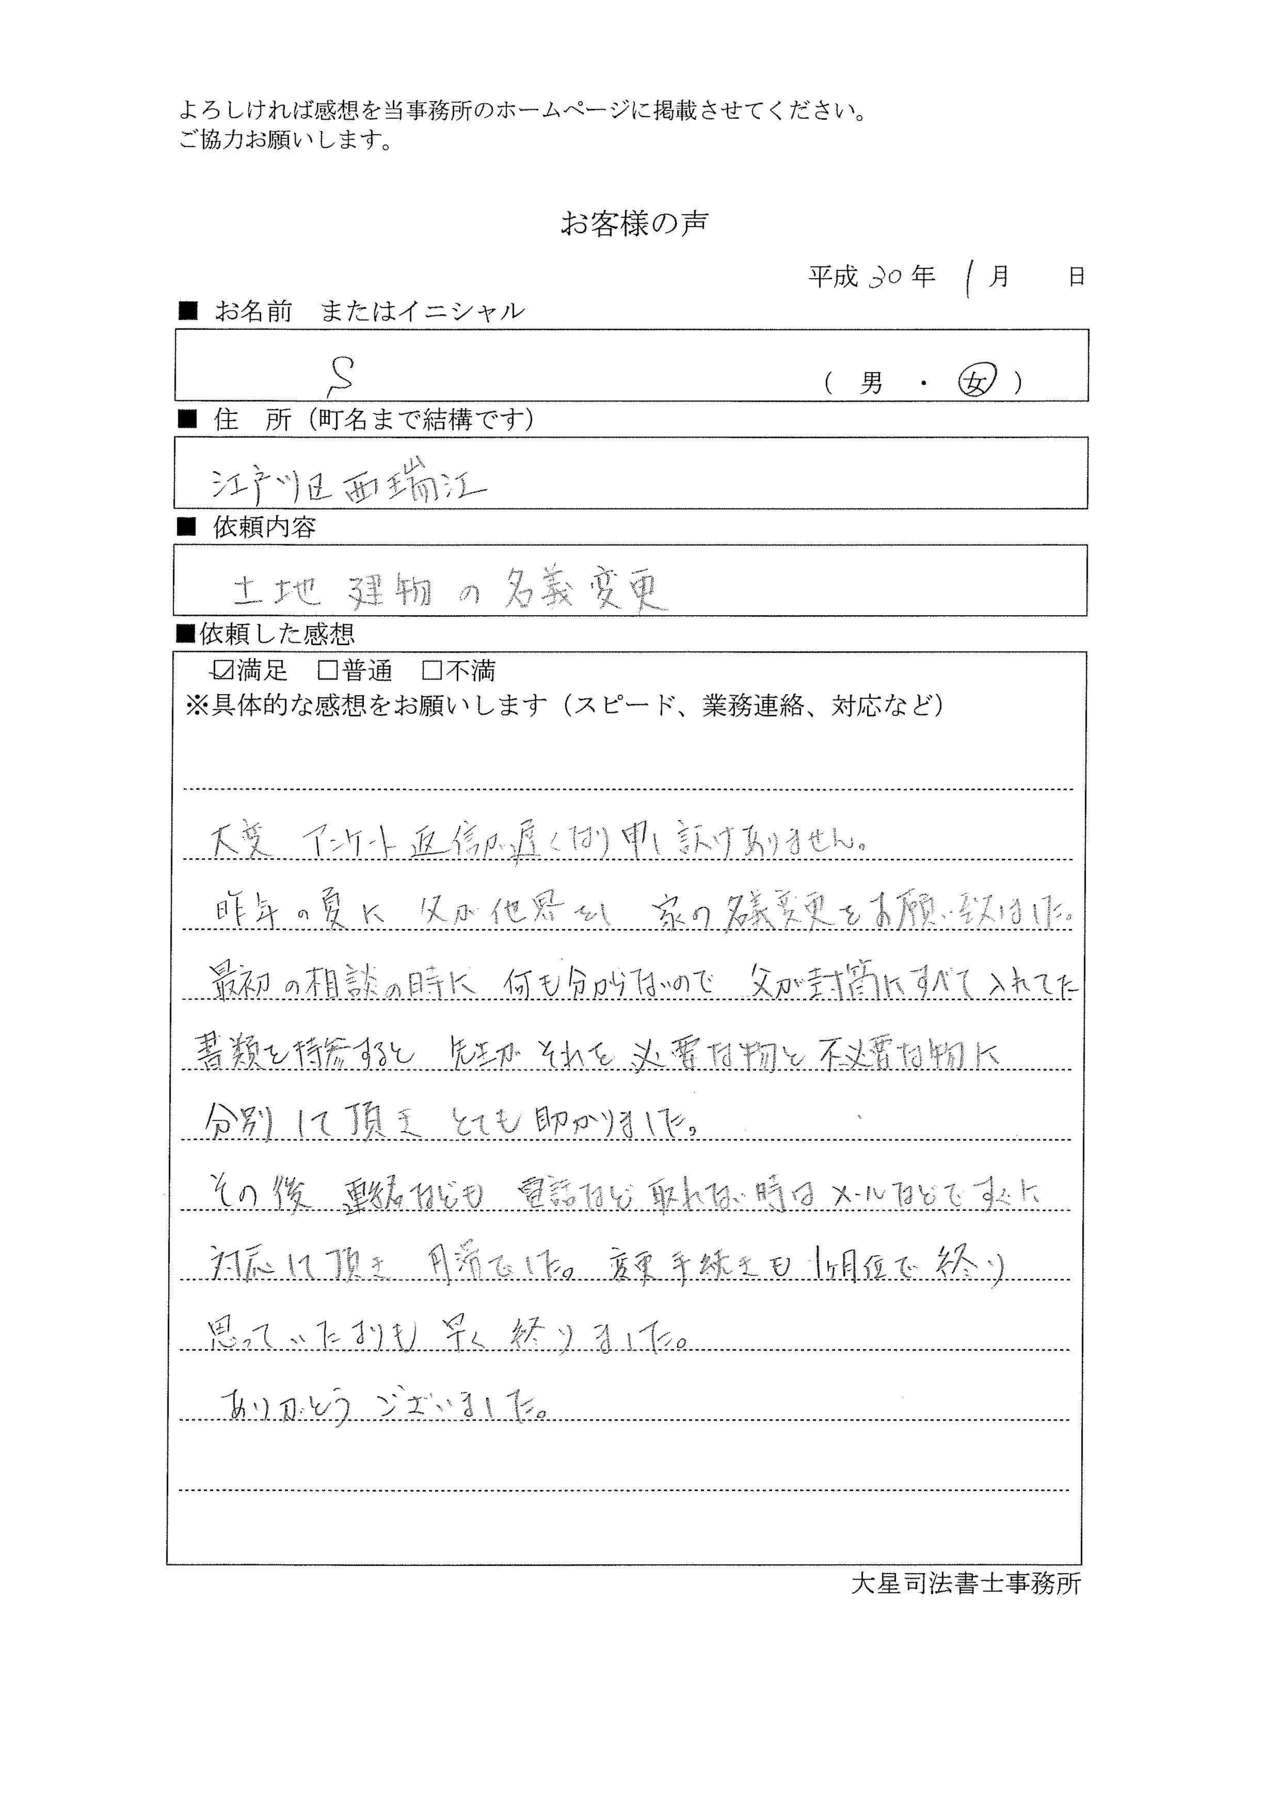 よろしければ感想を当事務所のホームページに掲載させてください。
ご協力お願いします。
お客様の声
平成 30 年 1 月 日
■ お名前 またはイニシャル
S ( 男 ・ 女 )
■ 住 所（町名まで結構です）
江戸川区西瑞江
■ 依頼内容
土地 建物の名義変更
■依頼した感想
☑満足 □普通 □不満
※具体的な感想をお願いします（スピード、業務連絡、対応など）
大変 アンケート返信が遅くなり申し訳けありません。
昨年の夏に 父が他界をし 家の名義変更をお願い致しました。
最初の相談の時に 何も分からないので 父が封筒にすべて入れてた
書類を持参すると 先生がそれを必要な物と不必要な物に
分別して頂き とても助かりました。
その後 連絡なども 電話など取れない時はメールなどですぐに
対応して頂き 円滑でした。変更手続きも1ヶ月位で終り
思っていたよりも 早く終りました。
ありがとうございました。
大星司法書士事務所